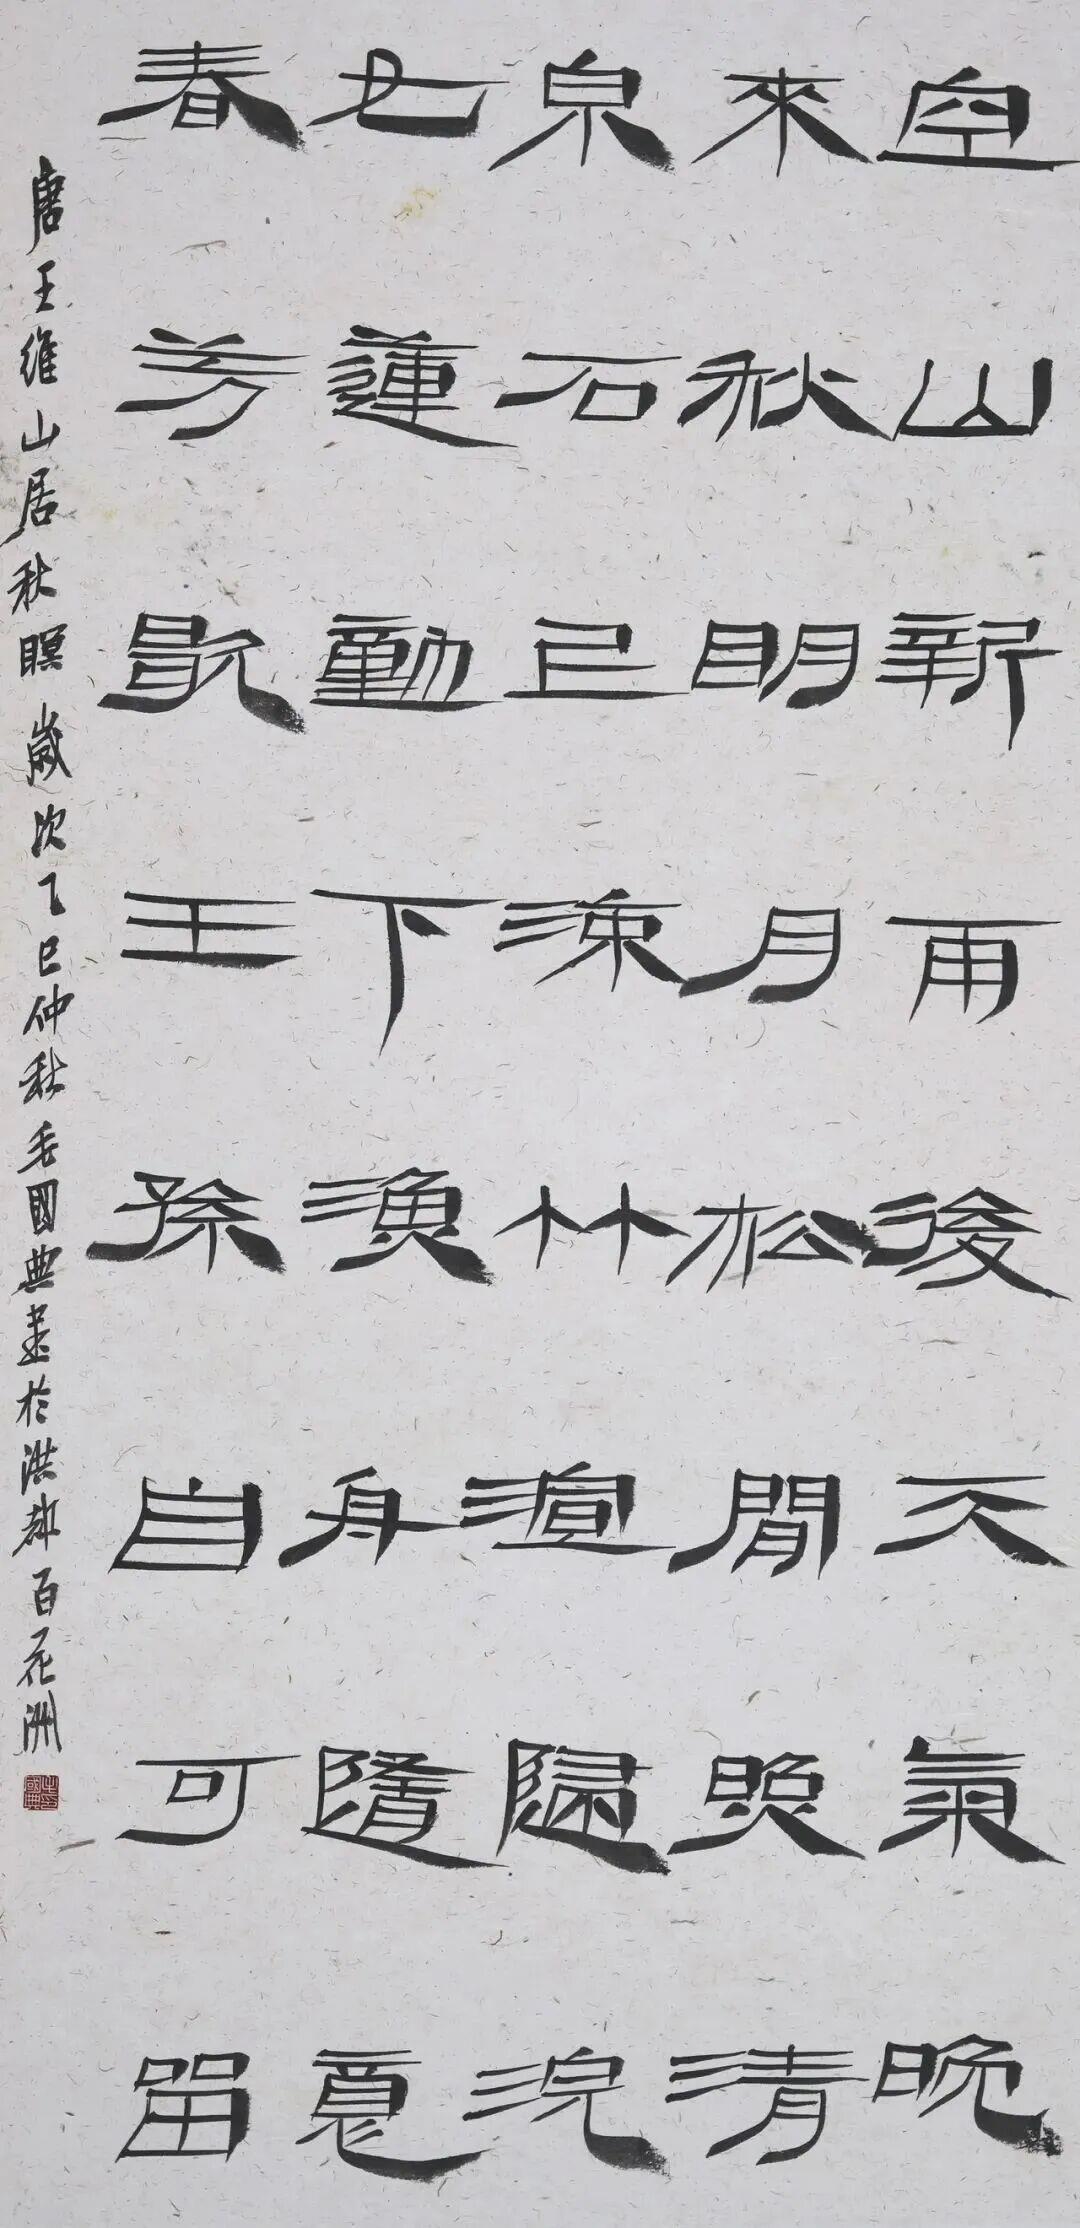 空山新雨後天氣晚
來秋明月松間照清
泉石已涼竹渲歸浣
女蓮動下漁舟隨意
春芳歇王孫自可留
唐王維山居秋瞑歲次乙巳仲秋毛國典書於洪都百花洲